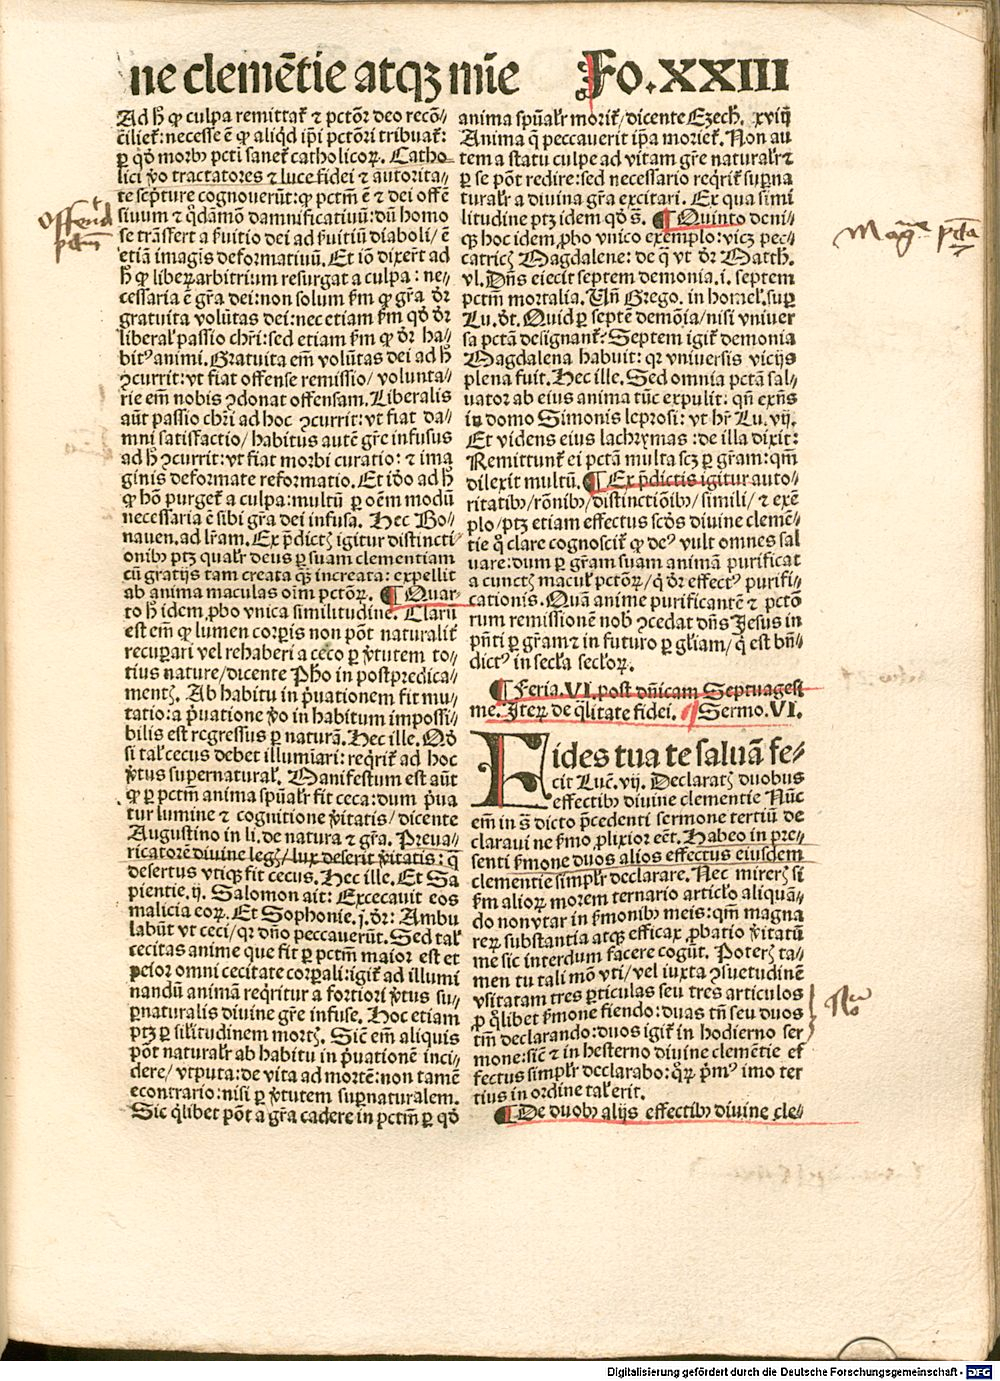 ne clemētie atqꝫ mīe Fo.XXIII
Ad hͦ ꝙ culpa remittatꝛ ⁊ pctōr deo recō⸗
cilietꝛ: necesse ē ꝙ aliqͥd ip̄i pctōri tribuatꝛ:
ꝑ qd̓ morbꝰ pcti sanetꝛ catholicoꝝ. Catho⸗
lici v̓o tractatores ⁊ luce fidei ⁊ autorita⸗
te scp̄ture cognouerūt: ꝙ pctm̄ ē ⁊ dei offē
siuum ⁊ qͦdāmō damnificatiuū: dū homo
se trāsfert a ẜuitio dei ad ẜuitiū diaboli/ ē
etiā imagis deformatiuū. Et iō dixert̄ ad
hͦ ꝙ liberꝝ arbitrium resurgat a culpa: ne⸗
cessaria ē gr̄a dei: non solum ẜm ꝙ gr̄a dr̄
gratuita volūtas dei: nec etiam ẜm qd̓ dr̄
liberalꝭ passio chr̄i: sed etiam ẜm ꝙ dr̄ ha⸗
bitꝰ animi. Gratuita em̄ volūtas dei ad hͦ
ꝯcurrit: vt fiat offense remissio/ volunta⸗
rie em̄ nobis ꝯdonat offensam. Liberalis
aūt passio chr̄i ad hoc ꝯcurrit: vt fiat da⸗
mni satisfactio/ habitus autē gr̄e infusus
ad hͦ ꝯcurrit: vt fiat morbi curatio: ⁊ ima
ginis deformate reformatio. Et iō ad hͦ
ꝙ hō purgetꝛ a culpa: multū ꝑ oēm modū
necessaria ē sibi gr̄a dei infusa. Hec Bo⸗
nauen. ad lr̄am. Ex p̄dictꝭ igitur distincti⸗
onibꝰ ptꝫ qualr̄ deus ꝑ suam clementiam
cū gratijs tam creata qꝫ increata: expellit
ab anima maculas oīm pctōꝝ. ¶ Quar⸗
to hͦ idem ꝓbo vnica similitudine. Clarū
est em̄ ꝙ lumen corꝑis non pōt naturalit̓
recuꝑari vel rehaberi a ceco ꝑ v̓tutem to⸗
tius nature/ dicente Pho in postpredica⸗
mentꝭ. Ab habitu in p̄uationem fit mu⸗
tatio: a p̄uatione v̓o in habitum impossi⸗
bilis est regressus ꝑ naturā. Hec ille. Qd̓
si talꝭ cecus debet illumīari: reqͥritꝛ ad hoc
v̓tus supernaturalꝭ. Manifestum est aūt
ꝙ ꝑ pctm̄ anima spūalr̄ fit ceca: dum p̄ua
tur lumine ⁊ cognitione v̓itatis/ dicente
Augustino in li. de natura ⁊ gr̄a. Preua⸗
ricatorē diuine legꝭ/ lux deserit v̓itatis: q̄
desertus vtiqꝫ fit cecus. Hec ille. Et Sa
pientie. ij. Salomon ait: Excecauit eos
malicia eoꝝ. Et Sophonie. j. dr̄: Ambu
labūt vt ceci/ qꝛ dn̄o peccauerūt. Sed talꝭ
cecitas anime que fit ꝑ pctm̄ maior est et
peior omni cecitate corꝑali: igitꝛ ad illumi
nandū animā reqͥritur a fortiori v̓tus su⸗
ꝑnaturalis diuine gr̄e infuse. Hoc etiam
ptꝫ ꝑ sil̓itudinem mortꝭ. Sic̄ em̄ aliquis
pōt naturalr̄ ab habitu in p̄uationē inci⸗
dere/ vtputa: de vita ad mortē: non tamē
econtrario: nisi ꝑ v̓tutem suꝑnaturalem.
Sic qͥlibet pōt a gr̄a cadere in pctm̄ ꝑ qd̓
anima spūalr̄ moritꝛ/ dicente Ezech. xviij
Anima q̄ peccauerit ip̄a morietꝛ. Non au
tem a statu culpe ad vitam gr̄e naturalr̄ ⁊
ꝑ se pōt redire: sed necessario reqͥritꝛ suꝑna
turalr̄ a diuina gr̄a excitari. Ex qua simi
litudine ptꝫ idem qd̓ s̄. ¶ Quinto deni⸗
qꝫ hoc idem ꝓbo vnico exemplo: vicꝫ pec⸗
catricꝭ Magdalene: de q̄ vt dr̄ Matth.
vl. Dn̄s eiecit septem demonia. i. septem
pctm̄ mortalia. Vn̄ Grego. in homel. suꝑ
Lu. dt̄. Quid ꝑ septē demōia/ nisi vniuer
sa pctā designantꝛ? Septem igitꝛ demonia
Magdalena habuit: qꝛ vniuersis vicijs
plena fuit. Hec ille. Sed omnia pctā sal⸗
uator ab eius anima tūc expulit: qn̄ exn̄s
in domo Simonis leprosi: vt hr̄ Lu. vij.
Et videns eius lachrymas: de illa dixit:
Remittuntꝛ ei pctā multa scꝫ ꝑ gr̄am: qm̄
dilexit multū. ¶ Ex p̄dictis igitur auto⸗
ritatibꝰ/ rōnibꝰ/ distinctiōibꝰ/ simili/ ⁊ exē
plo/ ptꝫ etiam effectus scd̓s diuine clemē⸗
tie qͦ clare cognoscitꝛ ꝙ deꝰ vult omnes sal
uare: dum ꝑ gr̄am suam animā purificat
a cunctꝭ maculꝭ pctōꝝ/ qͥ dr̄ effectꝰ purifi⸗
cationis. Quā anime purificantē ⁊ pctō
rum remissionē nob̓ ꝯcedat dn̄s Jesus in
p̄nti ꝑ gr̄am ⁊ in futuro ꝑ gl̓iam/ qͥ est bn̄⸗
dictꝰ in secl̓a secl̓oꝝ.
¶ Feria. VI. post dn̄icam Septuagesi
me. Iteꝝ de qͣlitate fidei. ¶ Sermo. VI.
Fides tua te saluā fe⸗
cit Luc̄. vij. Declaratꝭ duobus
effectibꝰ diuine clementie Nūc
em̄ in s̄ dicto p̄cedenti sermone tertiū de
claraui ne ẜmo ꝓlixior eēt. Habeo in pre⸗
senti ẜmone duos alios effectus eiusdem
clementie simplr̄ declarare. Nec mirerꝭ si
ẜm alioꝝ morem ternario articl̓o aliquā⸗
do non vtar in ẜmonibꝰ meis: qm̄ magna
reꝝ substantia atqꝫ efficax ꝓbatio v̓itatū
me sic interdum facere cogūt. Poterꝭ ta⸗
men tu tali mō vti/ vel iuxta ꝯsuetudinē
vsitatam tres ꝑticulas seu tres articulos
ꝓ qͦlibet ẜmone fiendo: duas tn̄ seu duos
tm̄ declarando: duos igitꝛ in hodierno ser
mone: sic̄ ⁊ in hesterno diuine clemētie ef
fectus simplr̄ declarabo: qͦꝝ p̄mꝰ imo ter
tius in ordine talꝭ erit.
¶ De duobꝰ alijs effectibꝰ diuine cle⸗
Offend
pctm
Mag
Digitalisierung gefördert durch die Deutsche Forschungsgemeinschaft - DFG